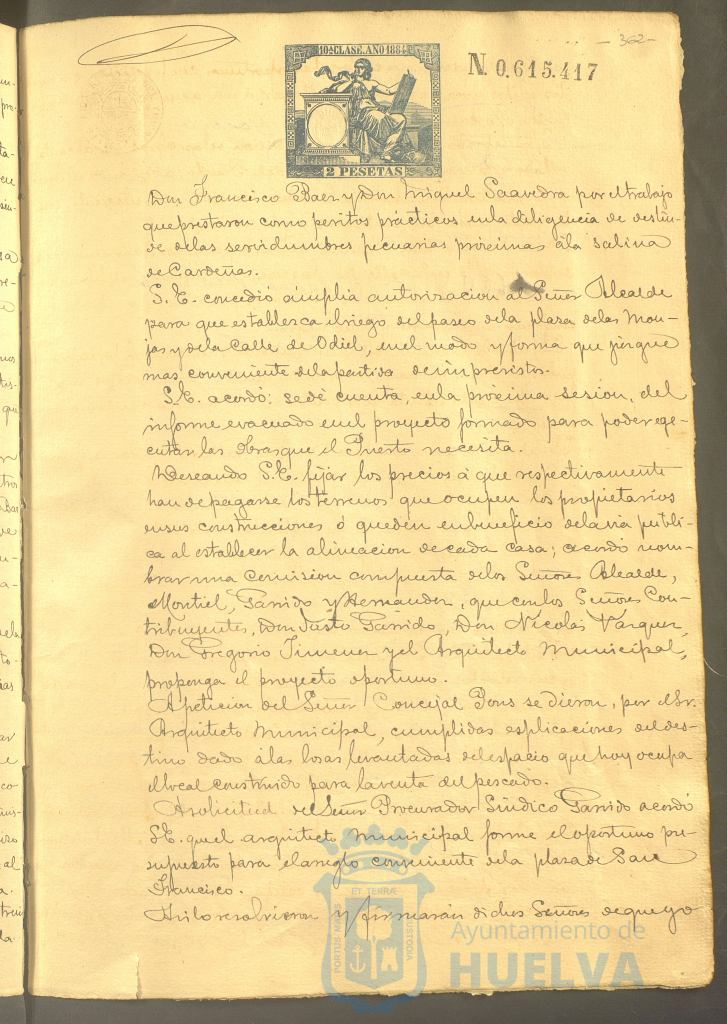 -362-
10ª CLASE. AÑO 1884
N. 0.615.417
2 PESETAS
Don Francisco Baez y Don Miguel Saavedra por el trabajo
que prestaron como peritos prácticos en la diligencia de deslin-
de de las servidumbres pecuarias próximas á la salina
de Cardeñas.
S. E. concedió ámplia autorizacion al Señor Alcalde
para que establesca el riego del paseo de la plaza de las Mon-
jas y de la Calle de Odiel, en el modo y forma que júzgue
mas conveniente de la partida de imprevistos.
S. E. acordó: se dé cuenta, en la próxima sesion, del
informe evacuado en el proyecto formado para poder ege-
cutar las obras que el Puerto necesita.
Deseando S. E. fijar los precios á que respectivamente
han de pagarse los terrenos que ocupen los propietarios
en sus construcciones ó queden en beneficio de la via públi-
ca al establecer la alineacion de cada casa; acordó nom-
brar una Comision compuesta de los Señores Alcalde,
Montiel, Garrido y Hernandez, que con los Señores Con-
tribuyentes, Don Justo Garrido, Don Nicolás Vazquez,
Don Gregorio Jimenez y el Arquitecto Municipal,
proponga el proyecto oportuno.
A peticion del Señor Concejal Pons se dieron, por el Sr.
Arquitecto Municipal, cumplidas esplicaciones del des-
tino dado á las losas levantadas del espacio que hoy ocupa
el local construido para la venta del pescado.
A solicitud del Señor Procurador Síndico Garrido acordó
S. E. que el arquitecto Municipal forme el oportuno pre-
supuesto para el arreglo conveniente de la plaza de San
Francisco.
Asi lo resolvieron y firmarán dichos Señores de que yo
PORTUS MARIS ET TERRÆ CUSTODIA
Ayuntamiento de
HUELVA